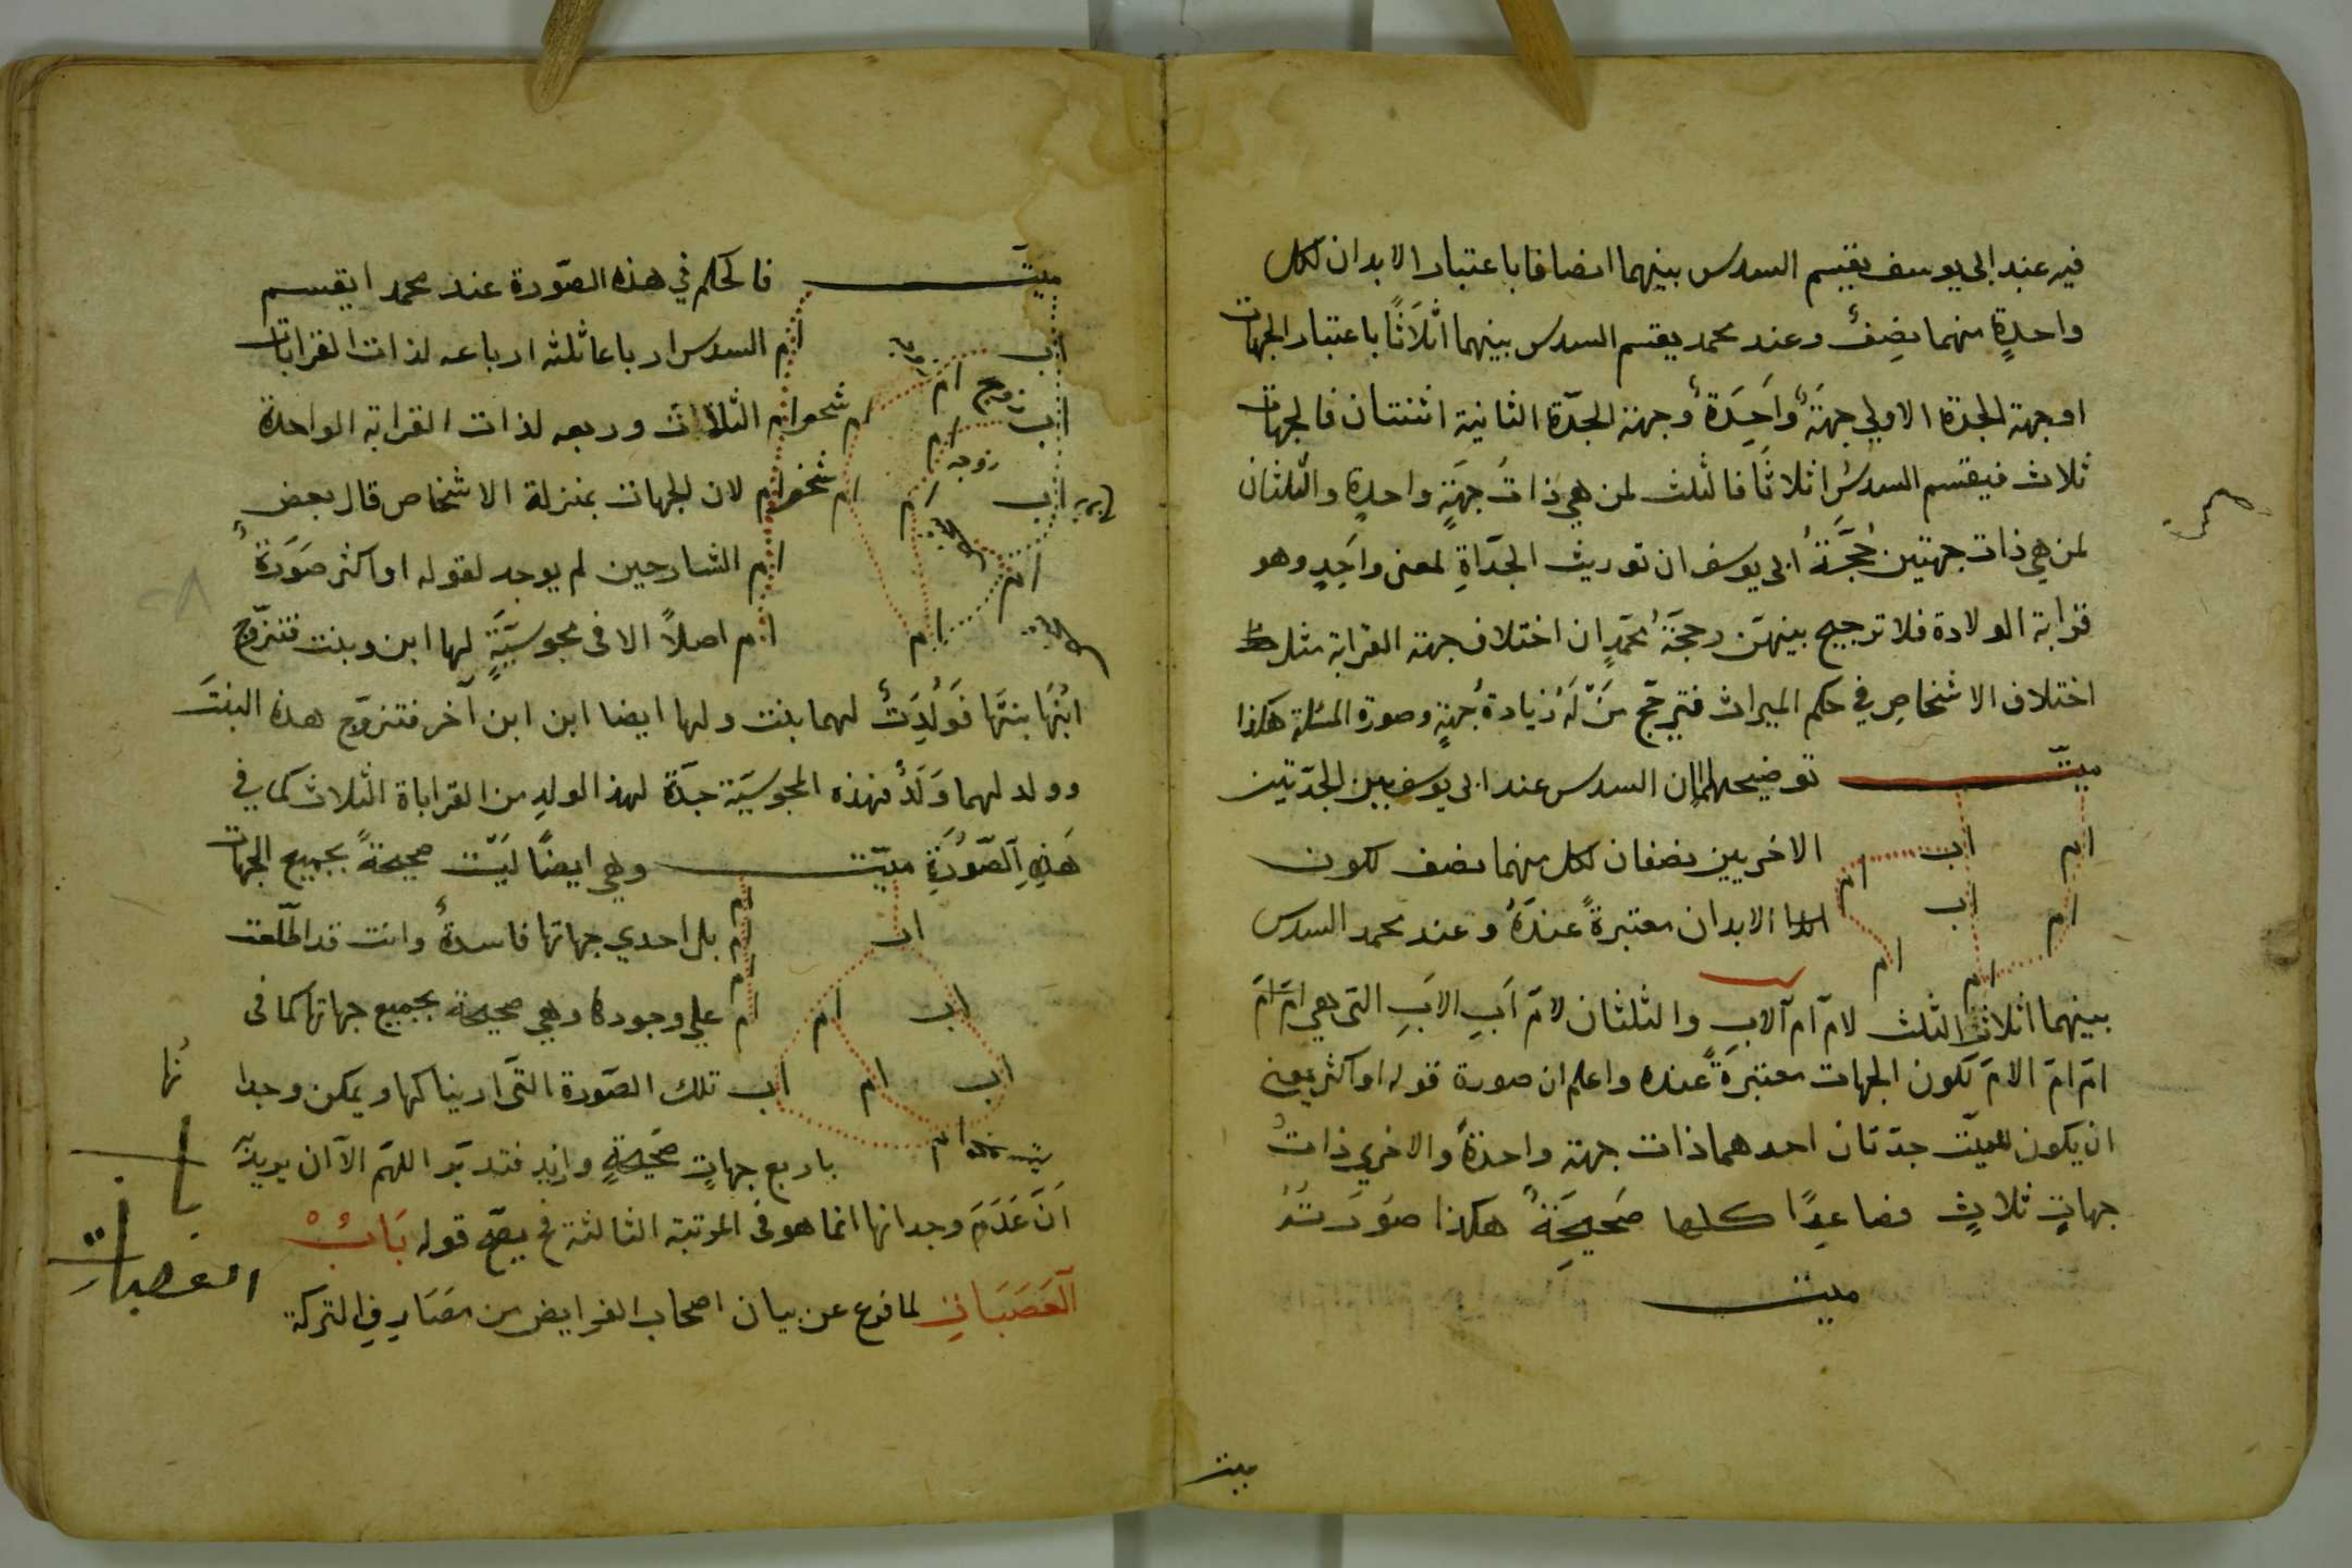 فيه عند ابي يوسف يقسم السدس بينهما انصافا باعتبار الابدان لكل
واحدةٍ منهما نصِفٌ وعند محمد يقسم السدس بينهما اثْلَاثًا باعتبار الجهات
او جهة الجدة الاولي جهَةٌ وَاحِدَةٌ وجهة الجدّة الثانية اثنتان فالجهات
ثلاث فيقسم السدسُ اثلاثًا فالثلث لمن هي ذاتُ جهَةٍ واحدةٍ والثلثان
لمن هي ذات جهتين حُجَّةُ ابي يوسف ان توريث الجدّاةِ لمعنى واحِدٍ وهو
قرابة الولادة فلا ترجيح بينهنّ وحجّةُ محمّدٍ ان اختلاف جهة القرابة مثل
اختلاف الاشخاصِ في حكم الميراث فيترجّح مَنْ لَهُ زيادةُ جهةٍ وصورة المسئلة هكذا
ميّت توضيحها ان السدس عند ابي يوسف بين الجدّتين
ام اب ام الاخريين نصفان لكل منهما نصف لكون
ام اب الابدان معتبرةً عندَهُ وعند محمد السدس
ام ام
بينهما اثلاثا الثلث لامّ امّ الابِ والثلثان لامّ اَبِ الابِ التى هي امّ امّ
امّ امّ الامّ لكون الجهات معتبرَةً عنده واعلم ان صورة قوله او اكثر يعنى
ان يكون للميّت جدّتان احدهما ذات جهة واحدةٌ والاخري ذاتُ
جهاتٍ ثلاثٍ فصاعِدًا كلها صَحيحَةٌ هكذا صوُرَتهُ
ميت
ميت
ميّت فالحكم في هذه الصّورة عند محمد ا يقسم
اب ام ام السدس ارباعا ثلثه ارباعه لذات القرابات
زوج
اب ام ام ام الثلاث وربعه لذات القرابة الواحدة
زوجه
اب ام ام ام لان الجهات بمنزلة الاشخاص قال بعض
ام ام الشارحين لم يوجد لقوله او اكثر صَورَةٌ
ام ام اصلاً الا فى مجوسيَّةٍ لها ابن وبنت فتزوّج
ابْنُهَا بنتَها فَوُلِدَتْ لهما بنت ولها ايضا ابن ابن آخر فتزوّج هذه البنتَ
وولد لهما وَلَدٌ فهذه المجوسيّة جدّة لهذ الولدِ من القراباة الثلاث كما في
هَذِهِ الصّورَةِ ميّت وهي ايضًا ليْسَت صحيحةً بجميع الجهات
اب ام ام بل احدي جهاتها فاسدةٌ وانت قد اطّلعت
اب ام ام ام علي وجودها وهي صحيحة بجميع جهاتها كما فى
اب ام اب تلك الصّورة التّى اريناكها ويمكن وجدا
نُها
ام باربع جهاتٍ صَحيحةٍ وازيد فتدبّر اللهمّ الّا ان يريد
اَنّ عَدَمَ وجدانها انما هو فى المرتبة الثالثة فح يصحّ قوله بَابُ
باب
العصبات
الْعَصَبَاتِ لما فرغ عن بيان اصحاب الفرايض من مصَارِفِ التركة